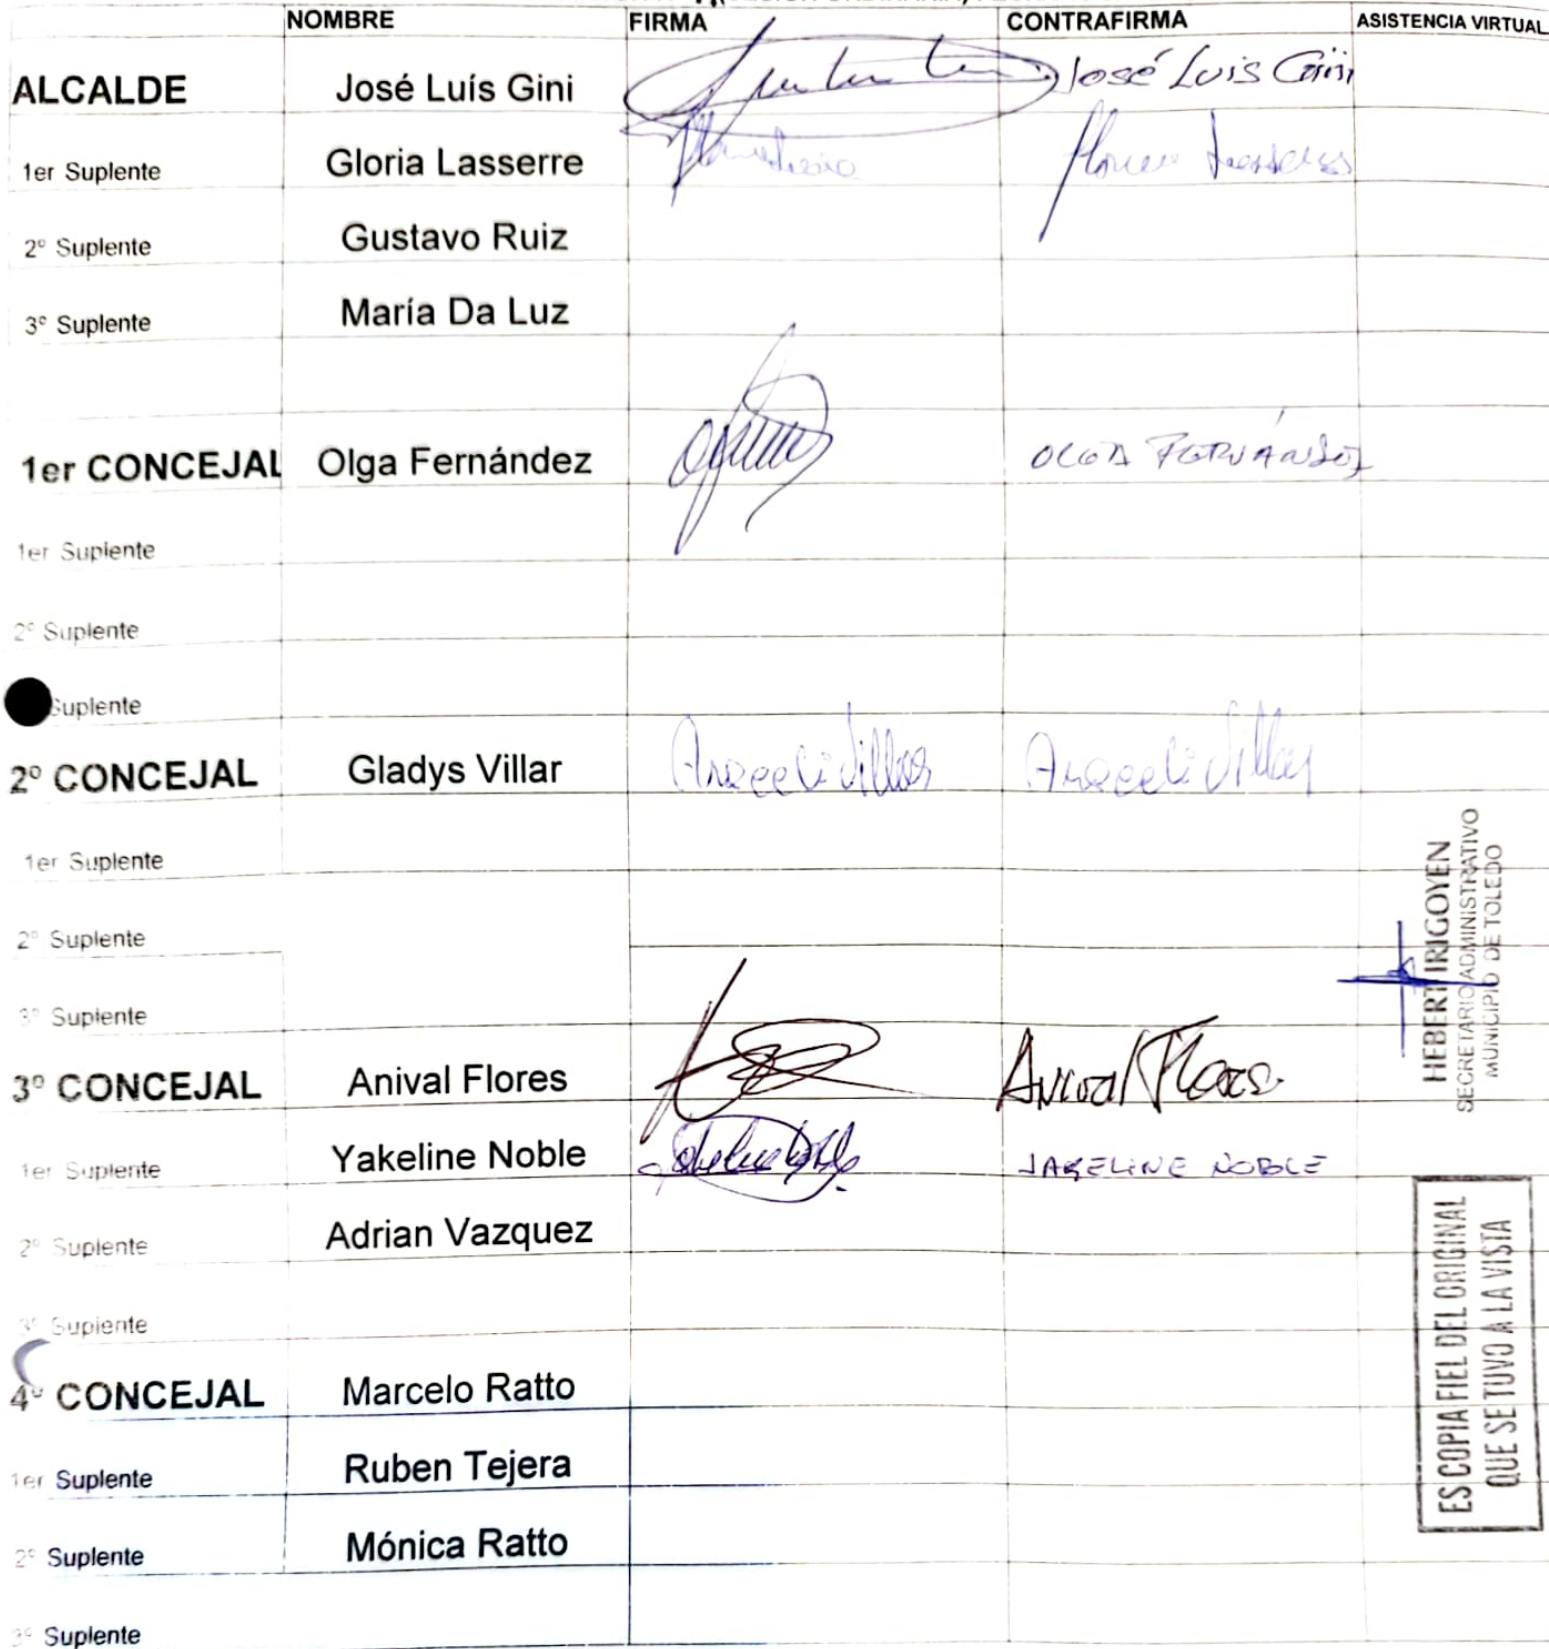 NOMBRE FIRMA CONTRAFIRMA ASISTENCIA VIRTUAL
ALCALDE José Luís Gini José Luis Gini
1er Suplente Gloria Lasserre
2º Suplente Gustavo Ruiz
3º Suplente María Da Luz
1er CONCEJAL Olga Fernández OLGA FERNÁNDEZ
1er Suplente
2º Suplente
Suplente
2º CONCEJAL Gladys Villar Araceli Villar Araceli Villar
1er Suplente
2º Suplente
3º Suplente
3º CONCEJAL Anival Flores Anival Flores
1er Suplente Yakeline Noble JAKELINE NOBLE
2º Suplente Adrian Vazquez
3º Suplente
4º CONCEJAL Marcelo Ratto
1er Suplente Ruben Tejera
2º Suplente Mónica Ratto
3º Suplente
HEBERT IRIGOYEN
SECRETARIO ADMINISTRATIVO
MUNICIPIO DE TOLEDO
ES COPIA FIEL DEL ORIGINAL
QUE SE TUVO A LA VISTA